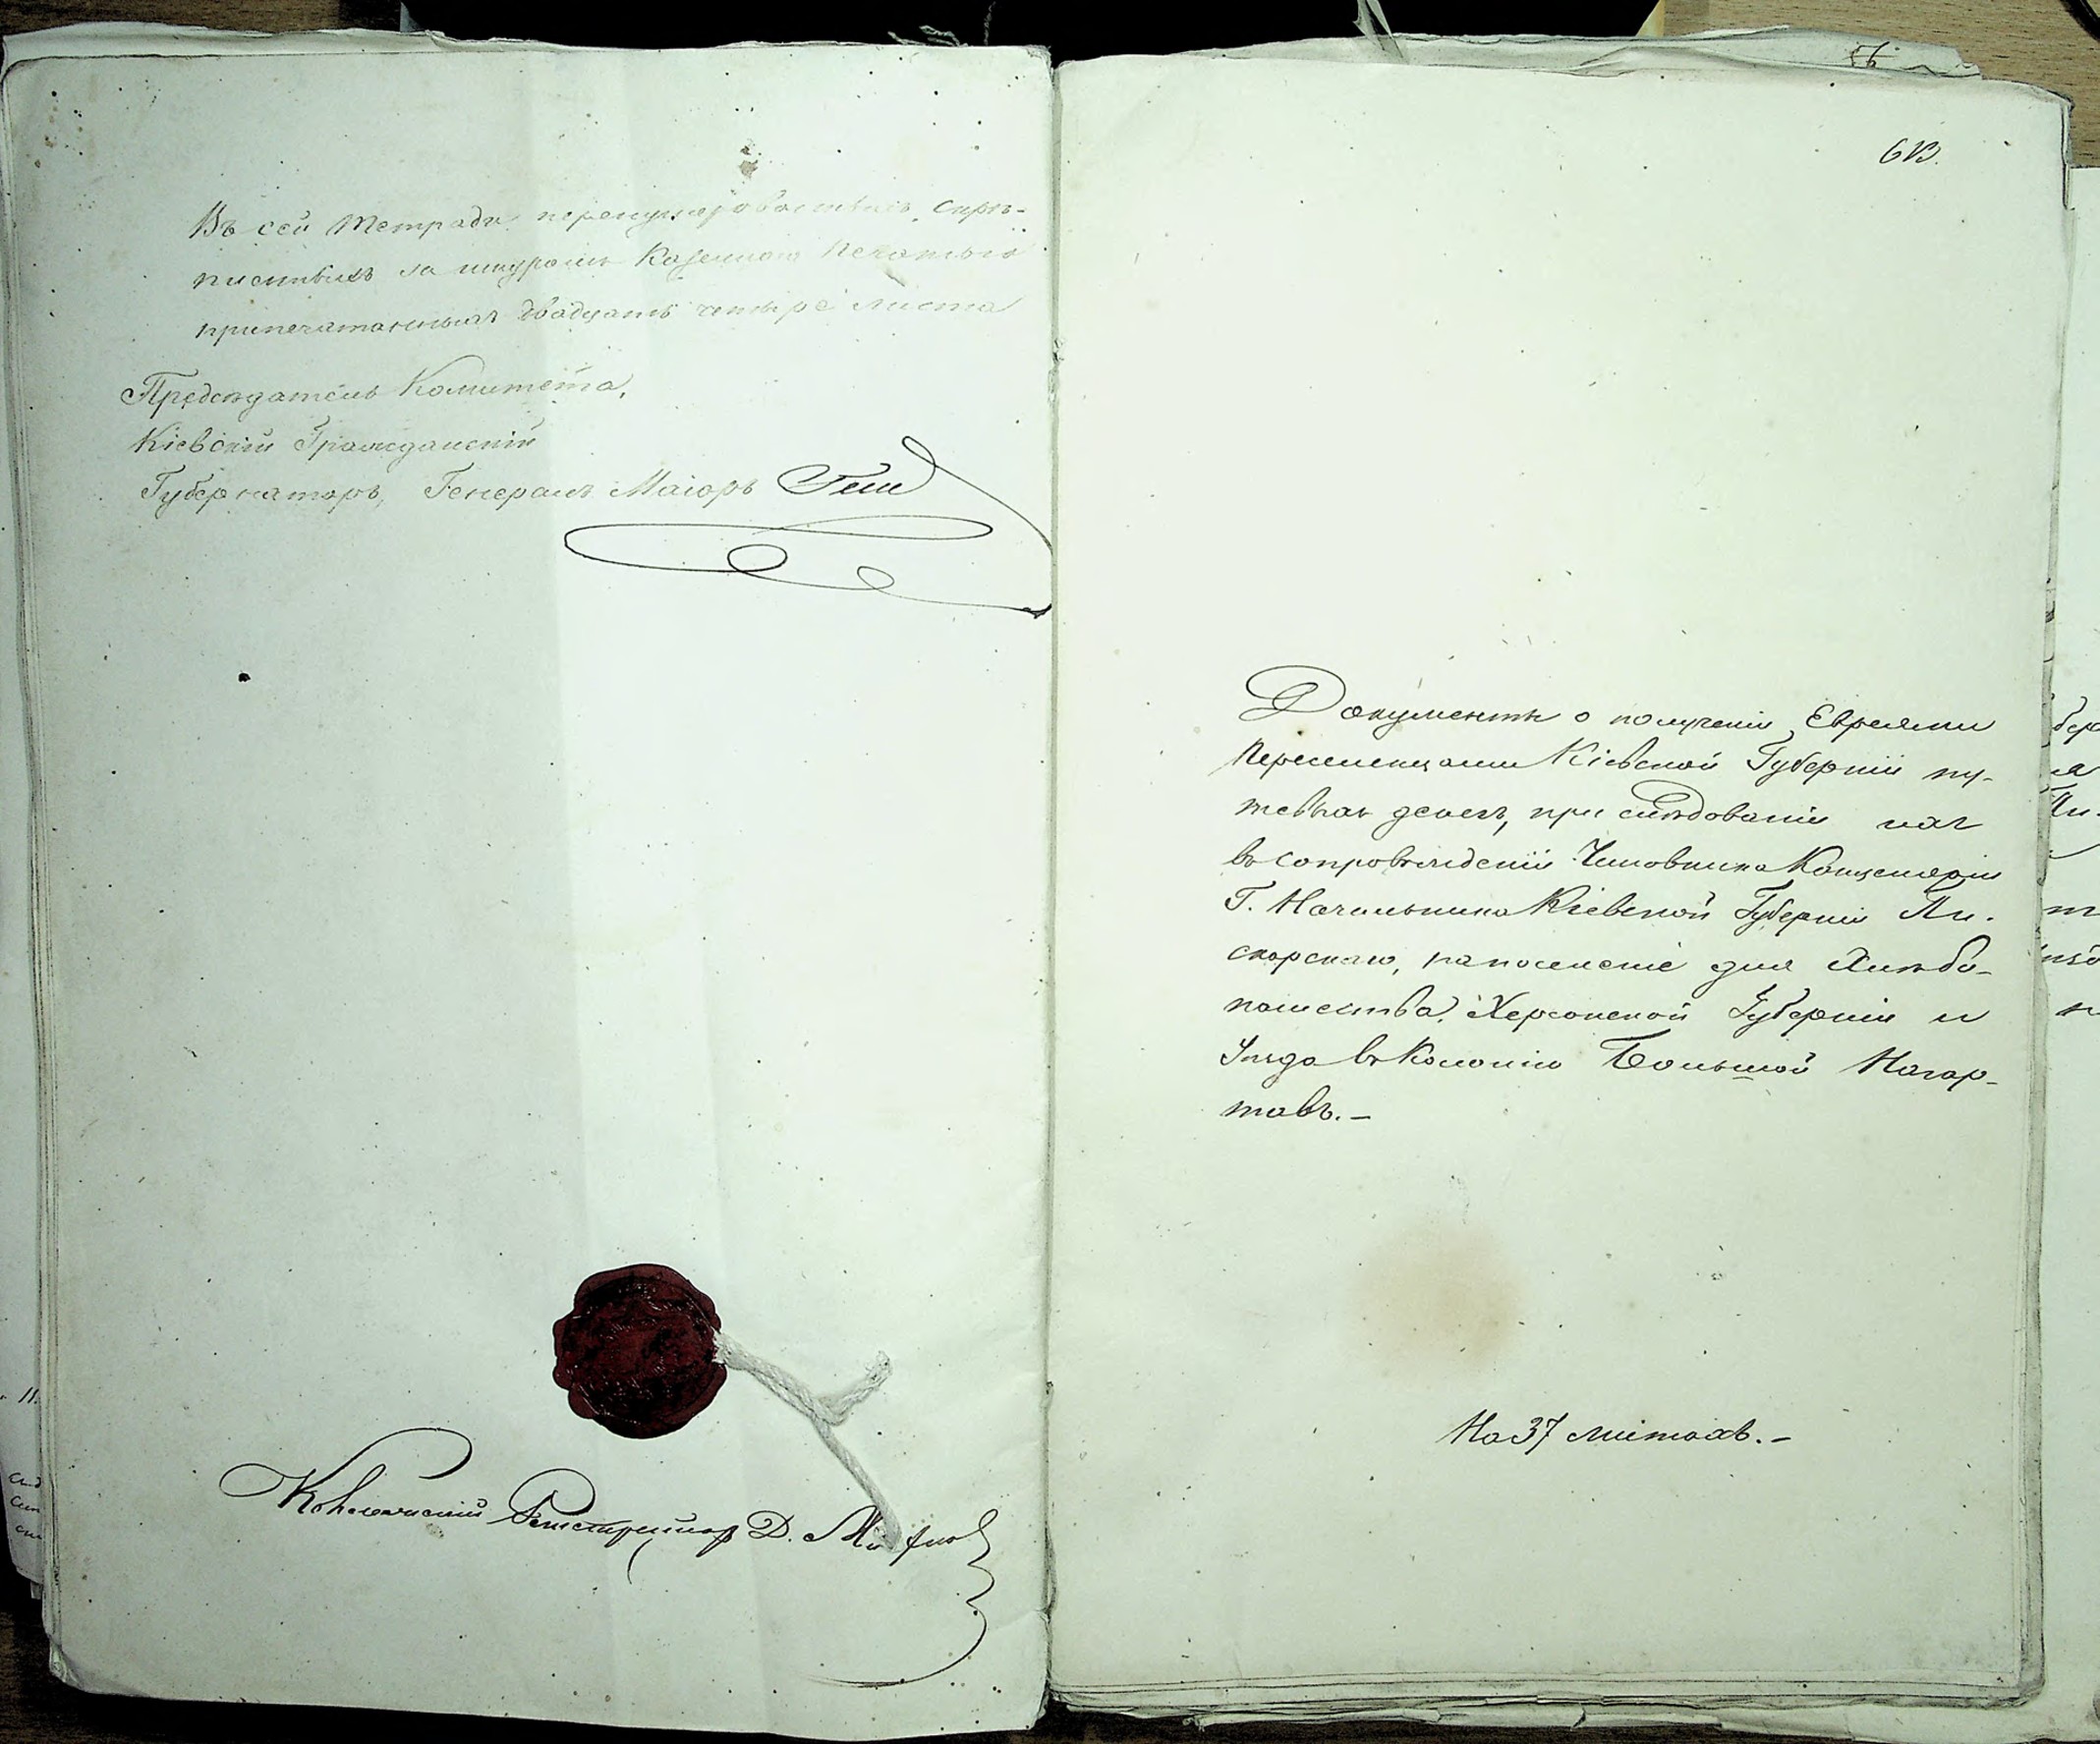 Въ сей тетради перенумерованныхъ, скрѣ-
пленныхъ за шнуромъ казенною печатью
припечатанныхъ двадцать четыре листа
Предсѣдатель Комитета,
Кіевскій Гражданскій
Губернаторъ, Генералъ Маіоръ Гессе
Коллежскій Регистраторъ Д.
613.
Документы о полученіи Евреями
Переселенцами Кіевской Губерніи пу-
тевыхъ денегъ, при слѣдованіи ихъ
въ сопровожденіи Чиновника Канцеляріи
Г. Начальника Кіевской Губерніи Пи-
скорскаго, на поселеніе для Хлѣбо-
пашества, Херсонской Губерніи и
Уѣзда въ Колонію Большой Нагар-
тавъ.-
На 37 листахъ.-